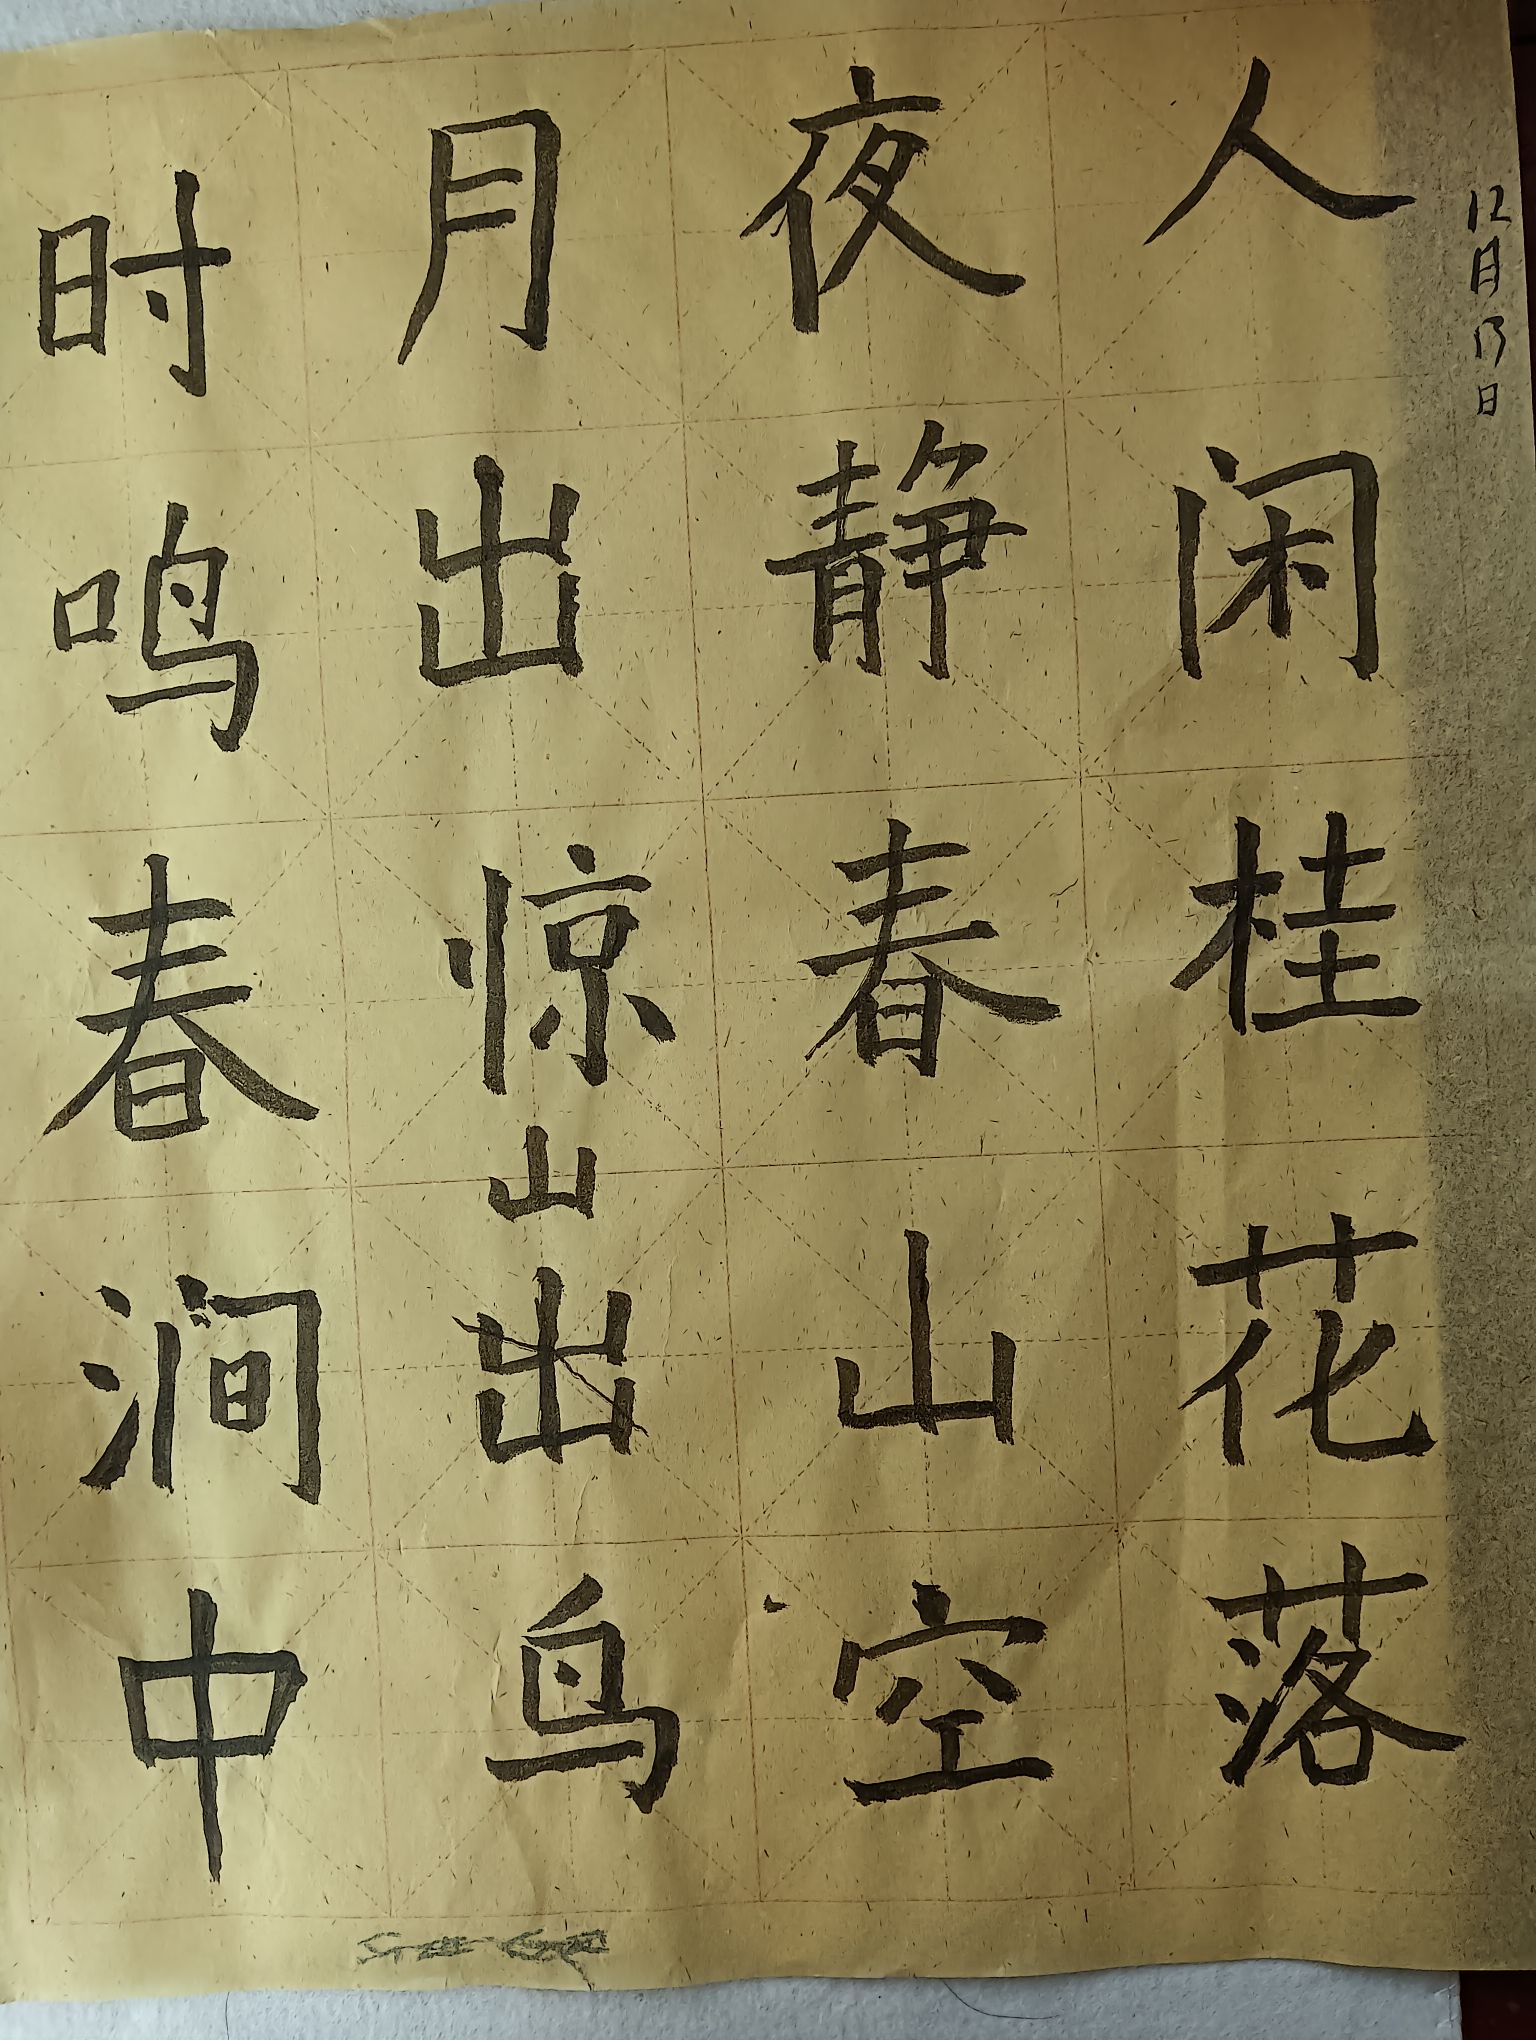 12月13日
人闲桂花落
夜静春山空
月出惊山出鸟
时鸣春涧中